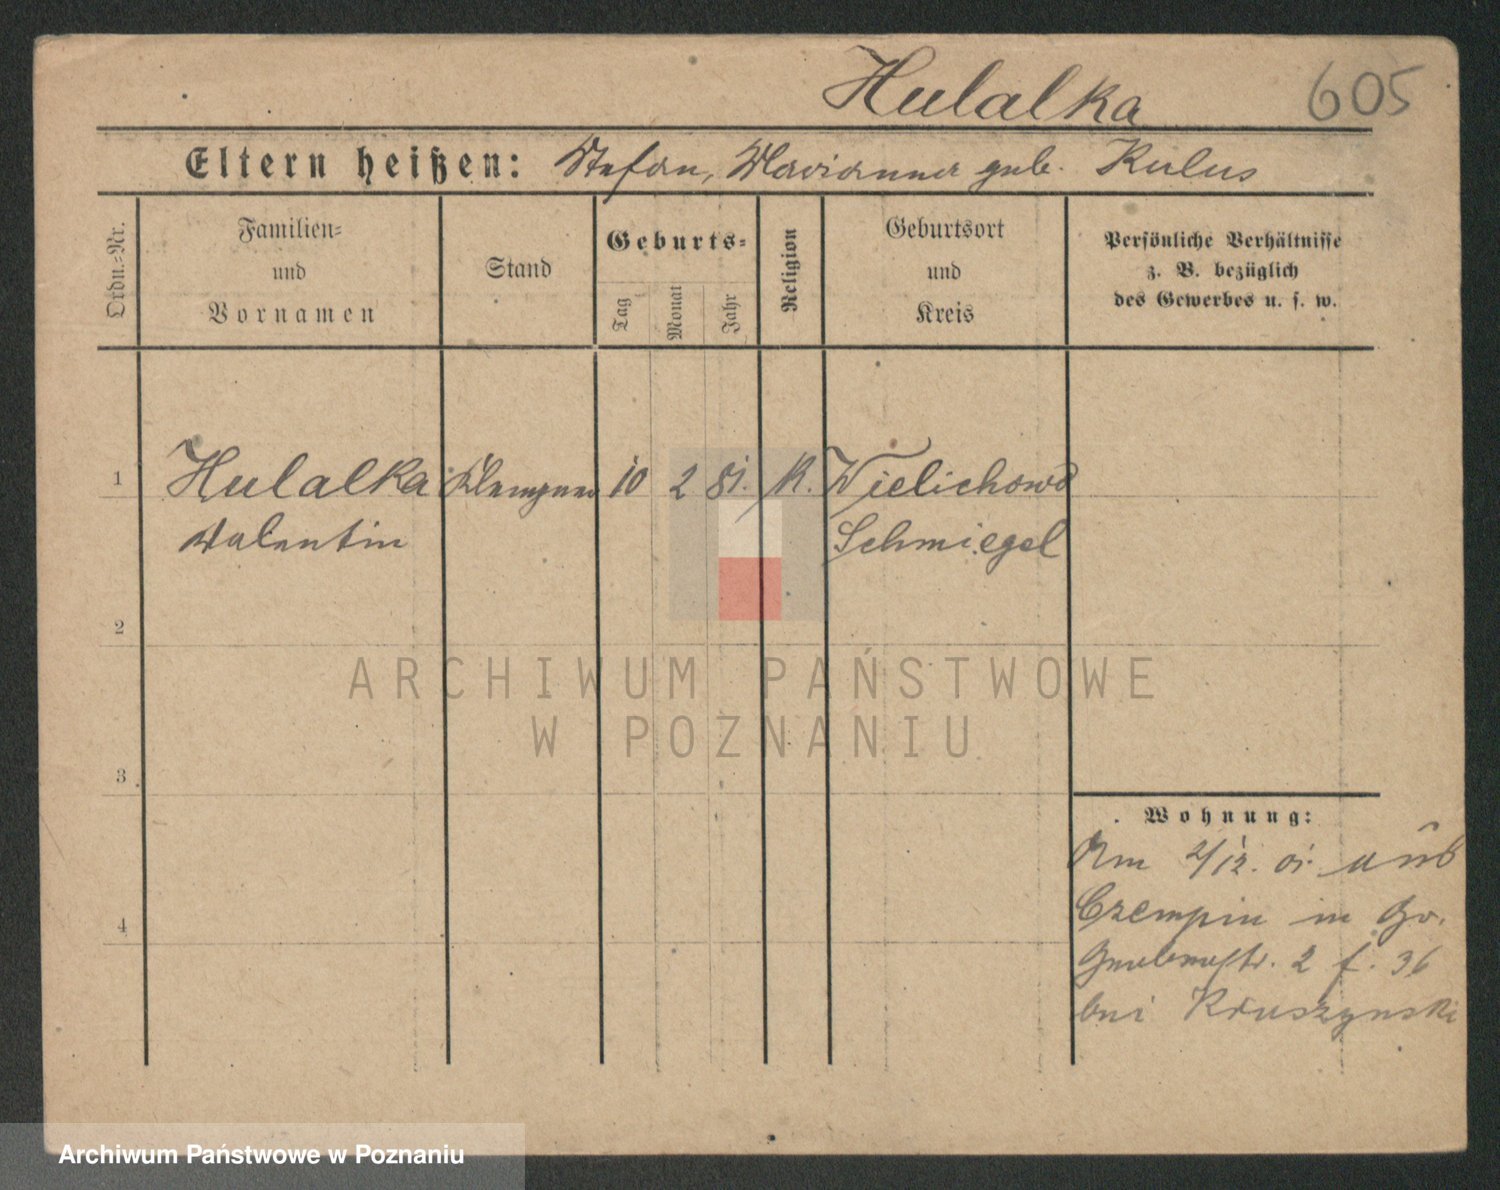 Hulalka 605
Eltern heißen: Stefan, Marianna geb. Kulus
Ordn.-Nr.
Familien-
und
Vornamen
Stand
Geburts-
Tag
Monat
Jahr
Religion
Geburtsort
und
Kreis
Persönliche Verhältnisse
z. B. bezüglich
des Gewerbes u. s. w.
1 Hulalka Klempner 10 2 81. K. Wielichowo
Valentin Schmiegel
2
3
4
Wohnung:
Am 2/12. 01. aus
Czempin in Gr.
2 f. 36
bei Kruszynski
ARCHIWUM PAŃSTWOWE
W POZNANIU
Archiwum Państwowe w Poznaniu